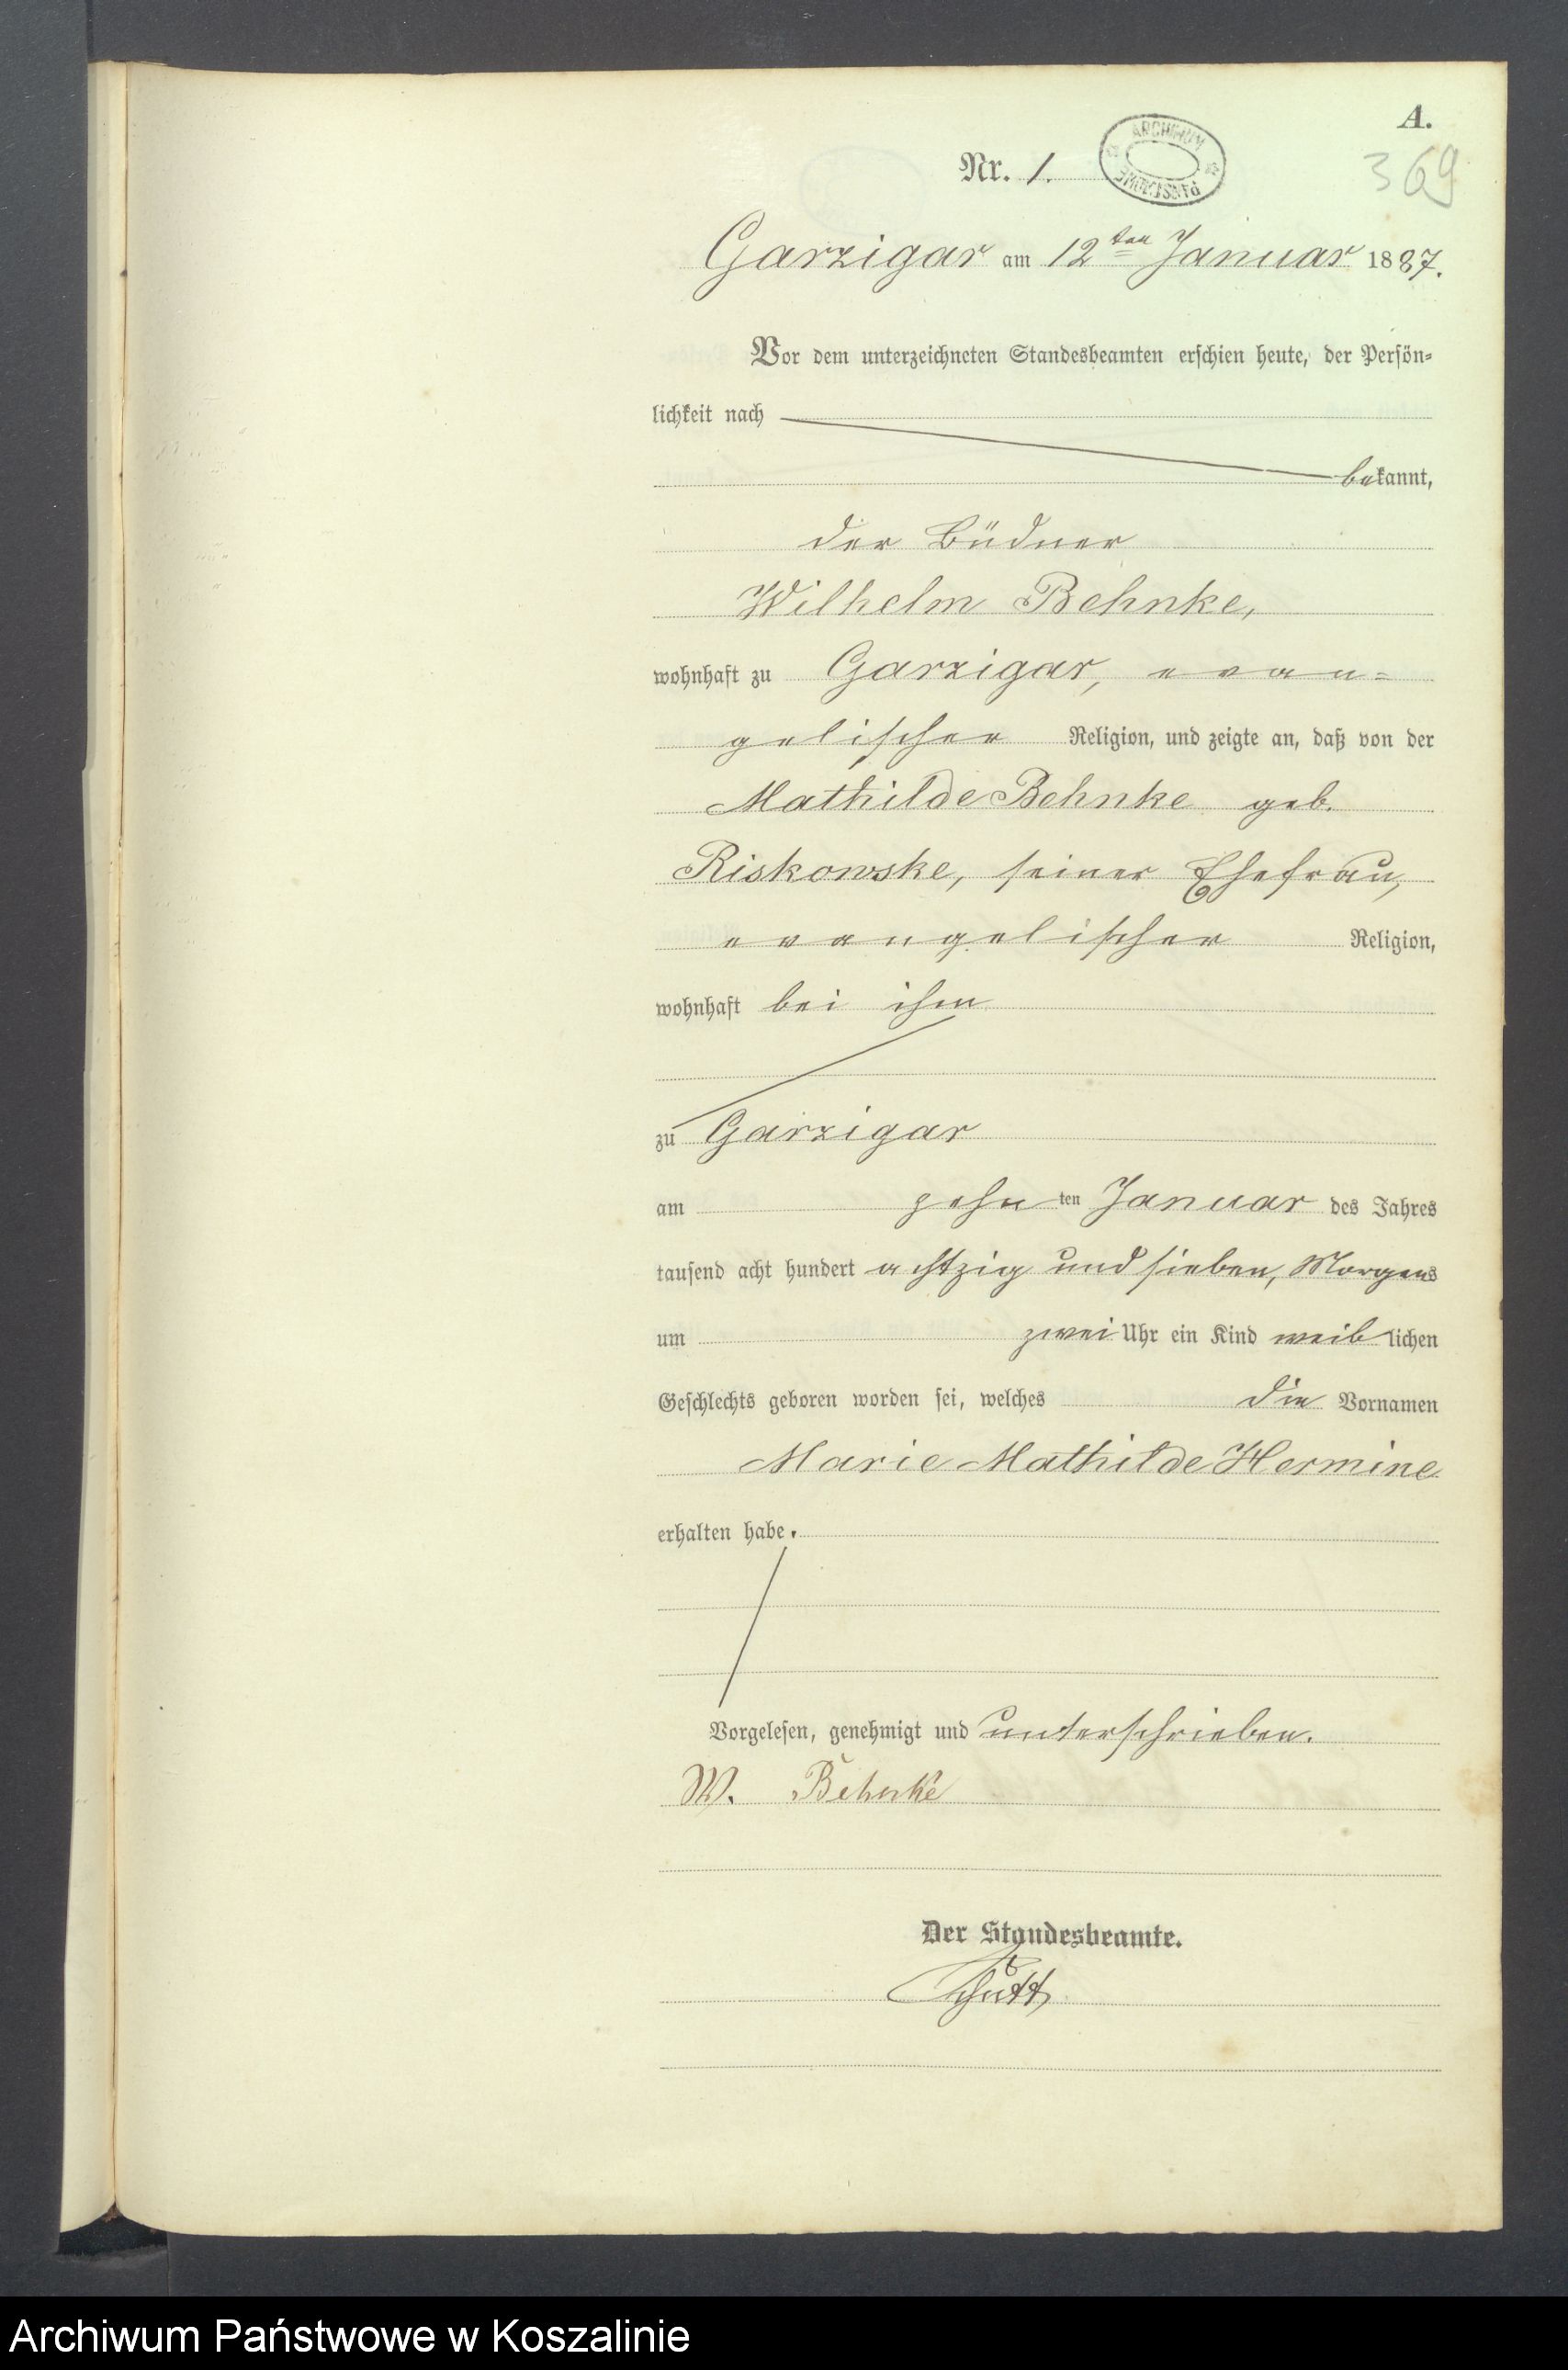 A.
Nr. 1.
ARCHIWUM PAŃSTWOWE
369
Garzigar am 12ten Januar 1887.
Vor dem unterzeichneten Standesbeamten erschien heute, der Persön-
lichkeit nach
bekannt,
der Büdner
Wilhelm Behnke,
wohnhaft zu Garzigar, evan-
gelischer Religion, und zeigte an, daß von der
Mathilde Behnke geb.
Riskowske, seiner Ehefrau,
evangelischer Religion,
wohnhaft bei ihm
zu Garzigar
am zehnten Januar des Jahres
tausend acht hundert achtzig und sieben, Morgens
um zwei Uhr ein Kind weiblichen
Geschlechts geboren worden sei, welches die Vornamen
Marie Mathilde Hermine
erhalten habe.
Vorgelesen, genehmigt und unterschrieben.
W. Behnke
Der Standesbeamte.
Schütt
Archiwum Państwowe w Koszalinie